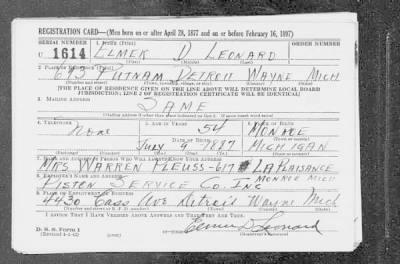 REGISTRATION CARD—(Men born on or after April 28, 1877 and on or before February 16, 1897)
SERIAL NUMBER 1. NAME (Print)
U 1614 ELMER D LEONARD
(First) (Middle) (Last)
2. PLACE OF RESIDENCE (Print)
693 PUTNAM DETROIT WAYNE MICH
(Number and street) (Town, township, village, or city) (County) (State)
[THE PLACE OF RESIDENCE GIVEN ON THE LINE ABOVE WILL DETERMINE LOCAL BOARD
JURISDICTION; LINE 2 OF REGISTRATION CERTIFICATE WILL BE IDENTICAL]
3. MAILING ADDRESS
SAME
4. TELEPHONE 5. AGE IN YEARS 6. PLACE OF BIRTH
NONE 54 MONROE
DATE OF BIRTH (Town or county)
JULY 9 1887 MICHIGAN
7. NAME AND ADDRESS OF PERSON WHO WILL ALWAYS KNOW YOUR ADDRESS
MRS WARREN PLEUSS-617 LAPLAISANCE
8. EMPLOYER'S NAME AND ADDRESS MONROE MICH
PISTON SERVICE CO. INC
9. PLACE OF EMPLOYMENT OR BUSINESS
4430 Cass Ave Detroit Wayne Mich
I AFFIRM THAT I HAVE VERIFIED ABOVE ANSWERS AND THAT THEY ARE TRUE.
D. S. S. Form 1 Elmer D Leonard
(Revised 4-1-42) (Registrant's signature)